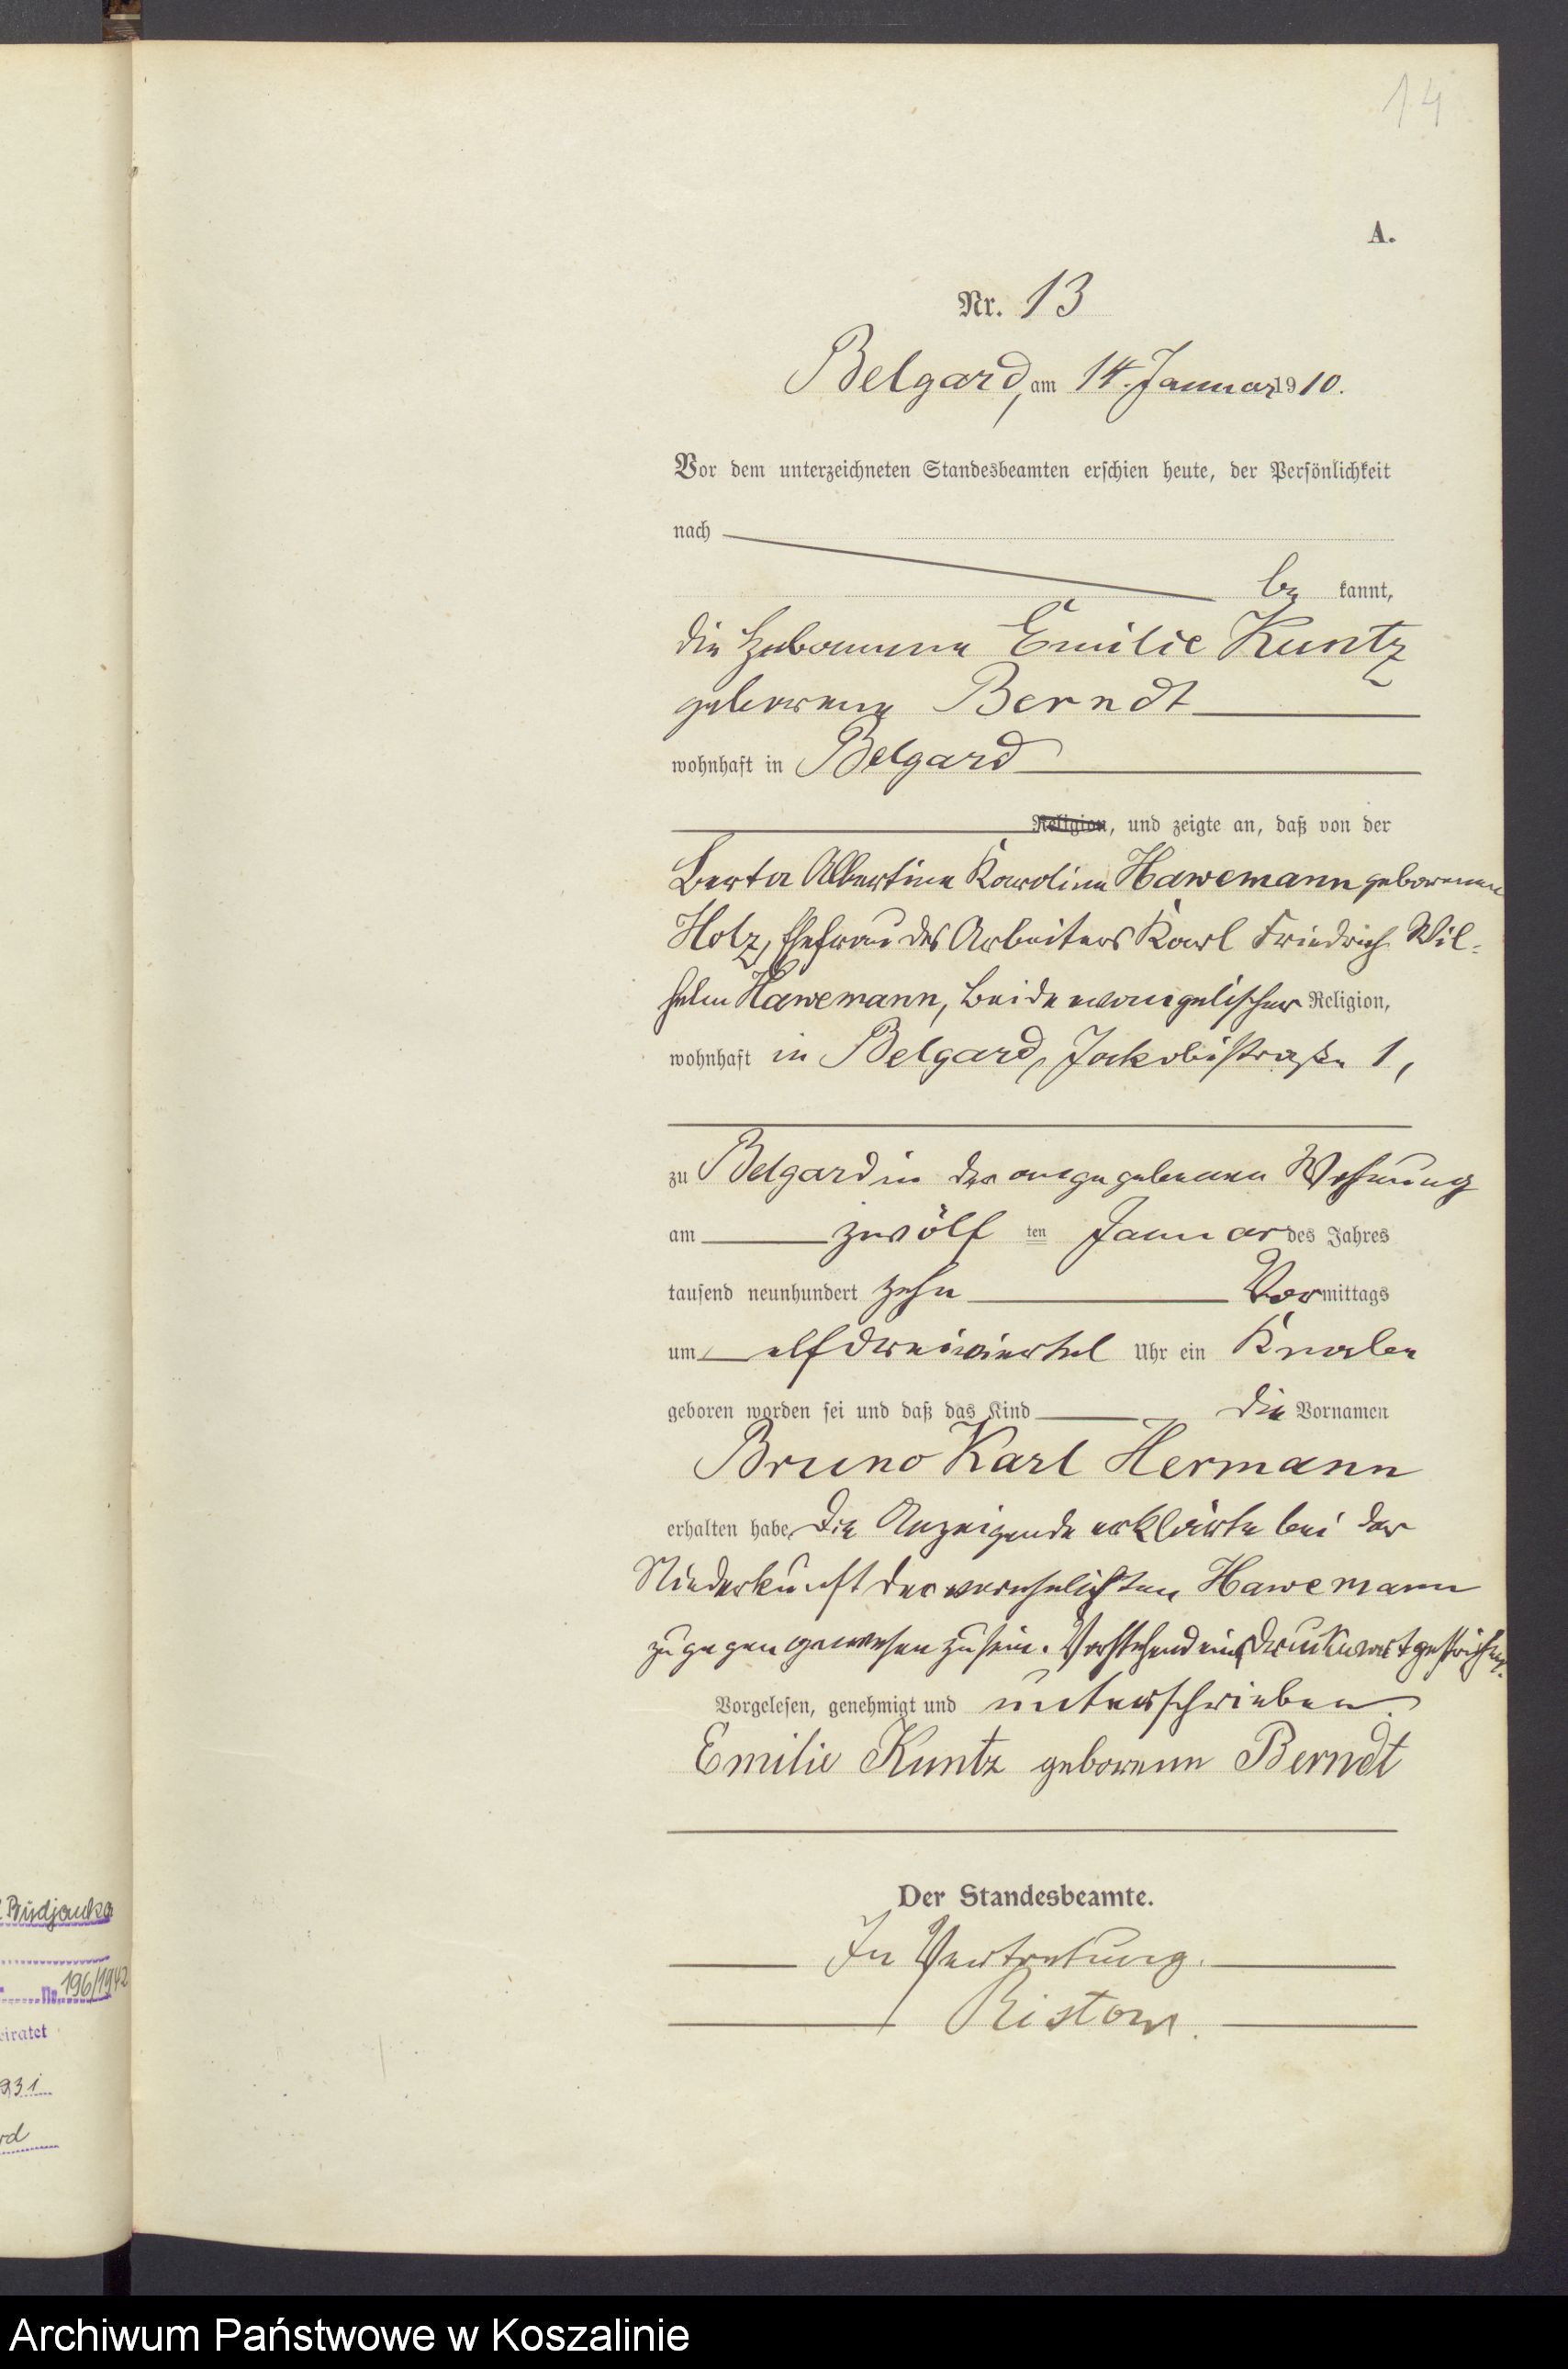 14
A.
Nr. 13
Belgard, am 14. Januar 1910.
Vor dem unterzeichneten Standesbeamten erschien heute, der Persönlichkeit
nach
be kannt,
die Hebamme Emilie Kuntz
geborene Berndt
wohnhaft in Belgard
Religion, und zeigte an, daß von der
Berta Albertine Karoline Hawemann geborenen
Holz, Ehefrau des Arbeiters Karl Friedrich Wil-
helm Hawemann, beide evangelischer Religion,
wohnhaft in Belgard, Jakobistraße 1,
zu Belgard in der angegebenen Wohnung
am zwölf ten Januar des Jahres
tausend neunhundert zehn Vormittags
um elf dreiviertel Uhr ein Knabe
geboren worden sei und daß das Kind die Vornamen
Bruno Karl Hermann
erhalten habe. Die Anzeigende erklärte bei der
Niederkunft der verehelichten Hawemann
zugegen gewesen zu sein. Vorstehend ein Druckwort gestrichen.
Vorgelesen, genehmigt und unterschrieben.
Emilie Kuntz geborene Berndt
Der Standesbeamte.
In Vertretung.
Ristow.
Nr. 196/1942
eiratet
931
rd
Archiwum Państwowe w Koszalinie